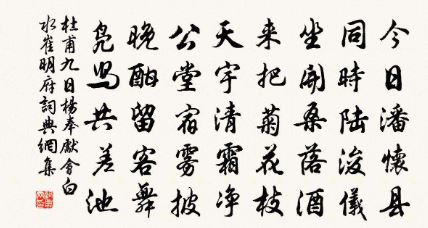 今日潘懷县
同時陆浚儀
坐開桑落酒
来把菊花枝
天宇清霜净
公堂宿雾披
晚酣留客舞
凫舄共差池
杜甫九日楊奉獻會白
水崔明府詞典網集